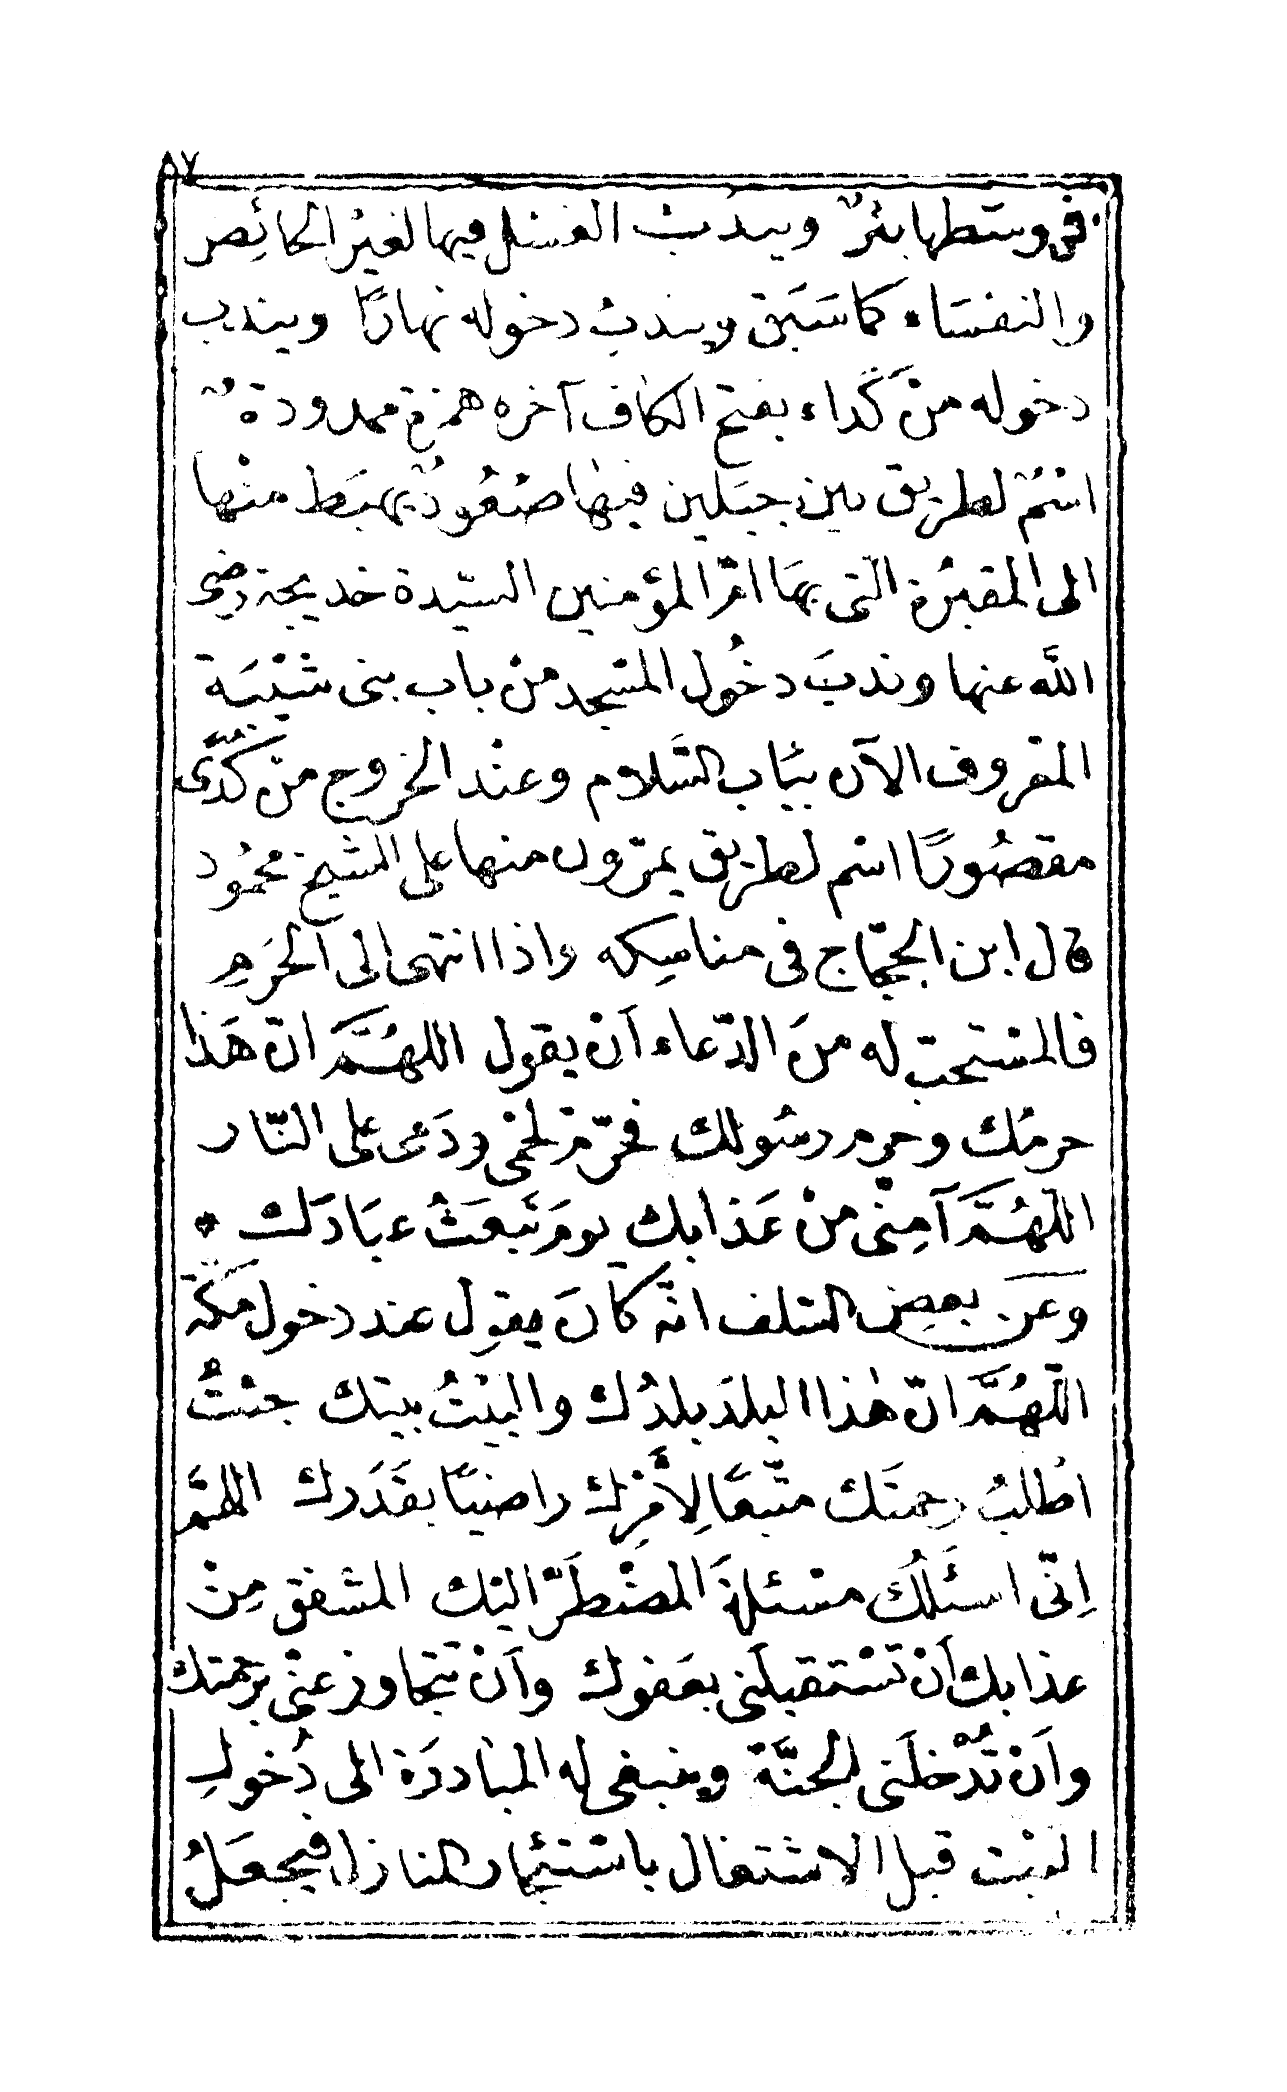 ٨٧
فى وسطها بئرٌ ويندبُ الغسل فيها لغير الحائِض
والنفسَاء كما سَبَق ويندبُ دخوله نهارًا ويندب
دخوله منْ كَداء بفتح الكاف آخره همزة ممدودةٌ
اسْمٌ لطريق بين جبَلين فيها صُعُودٌ يهبَط منْها
الى المقبُرة الّتى بهَا امّ المؤمنين السّيدة خديجة رضى
اللّه عنها وندبَ دخُول المسْجد منْ باب بنى شَيْبَة
المعْروف الآن ببَاب السَّلام وعنْد الخروج منْ كُدًى
مقصُورًا اسْم لطريق يمرّون منها على الشيخ محمُود
قال ابن الحجّاج فى مناسِكه واذا انتهى الى الحَرَمِ
فالمسْتحبّ له منَ الدّعاء اَنْ يقول اللهُمَّ انّ هَذا
حرمُك وحرم رسُولك فحرّمْ لحْمى ودَمى على النّار
اللّهُمَّ آمِنّى منْ عَذابك يومَ تَبعَثُ عبَادَك *
وعَن بعضِ السّلف انّه كانَ يقول عند دخول مكّة
اللّهُمَّ انّ هٰذا البلدَ بلدُك والبيْتُ بيتك جئْتُ
اطْلبُ رحمتَك متّبعًا لِأَمْرِك راضيًا بقَدَرك اللهمَّ
اِنّى اسئَلُك مسْئلةَ المضْطَرّ اليْك المشفق مِنْ
عذابك اَنْ تسْتقبلَنى بعَفوك واَنْ تتجاوز عنّى برحمتك
واَنْ تُدْخلَنى الجنَّة وينبغى له المبَادرَة الى دُخول
البيْت قبل الاشتغال باسْتئجار المنازل فيجعَلُ